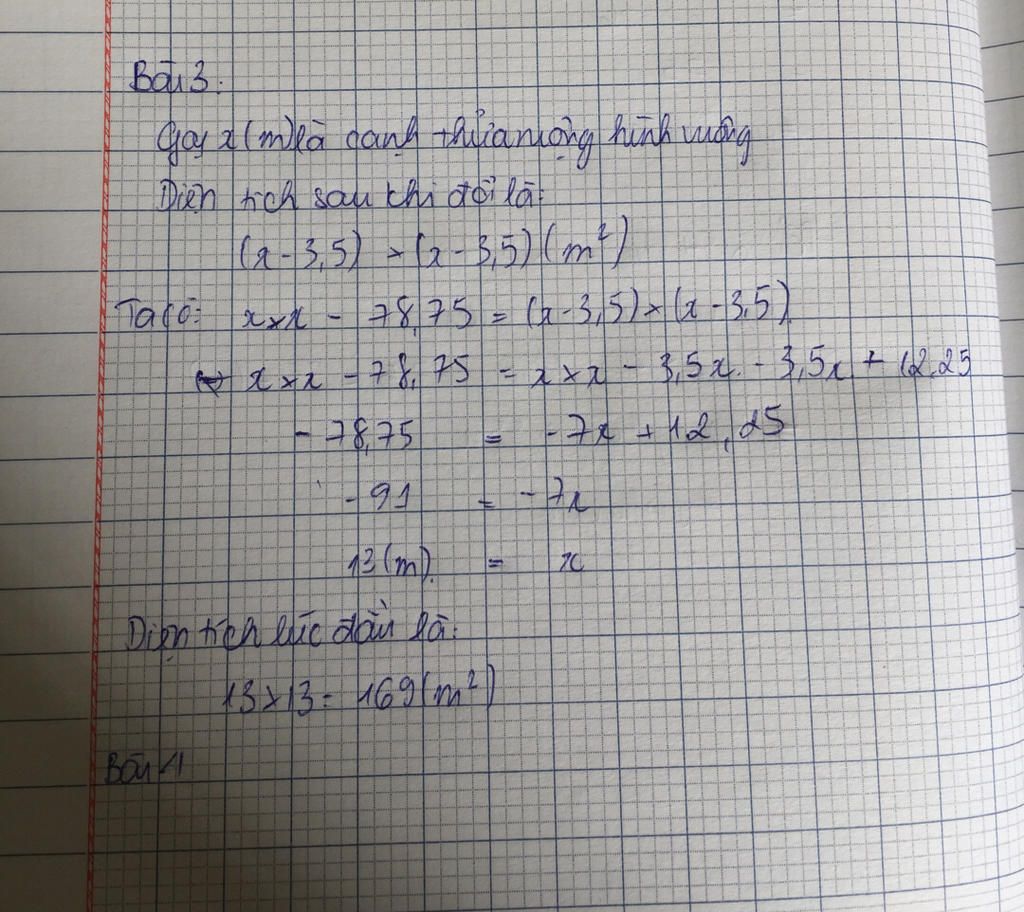 Bài 3:
Gọi x (m) là cạnh thửa ruộng hình vuông
Diện tích sau khi đổi là:
(x - 3,5) × (x - 3,5) (m²)
Ta có: x × x - 78,75 = (x - 3,5) × (x - 3,5)
↔ x × x - 78,75 = x × x - 3,5x - 3,5x + 12,25
- 78,75 = - 7x + 12,25
- 91 = - 7x
13 (m) = x
Diện tích lúc đầu là:
13 × 13 = 169 (m²)
Bài 4